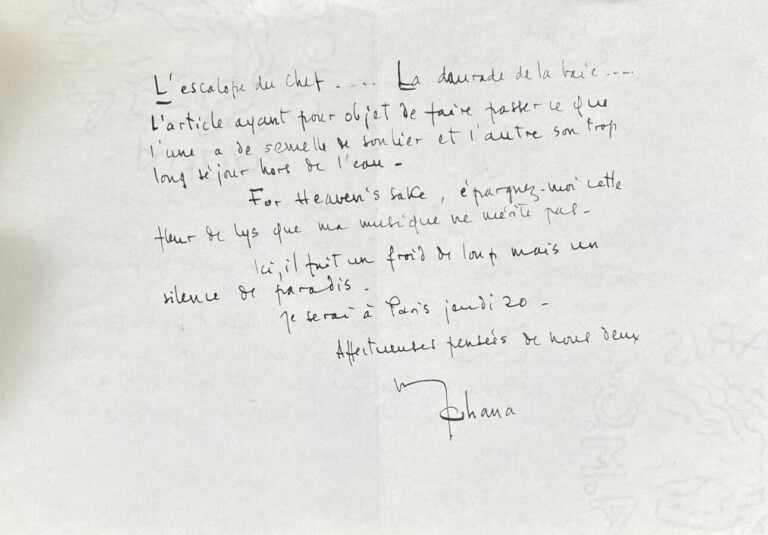 L'escalope du chef .... La daurade de la baie....
L'article ayant pour objet de faire passer ce que
l'une a de semelle de soulier et l'autre son trop
long séjour hors de l'eau -
For Heaven's sake, épargnez-moi cette
fleur de lys que ma musique ne mérite pas -
Ici, il fait un froid de loup mais un
silence de paradis.
Je serai à Paris jeudi 20 -
Affectueuses pensées de nous deux
Ohana